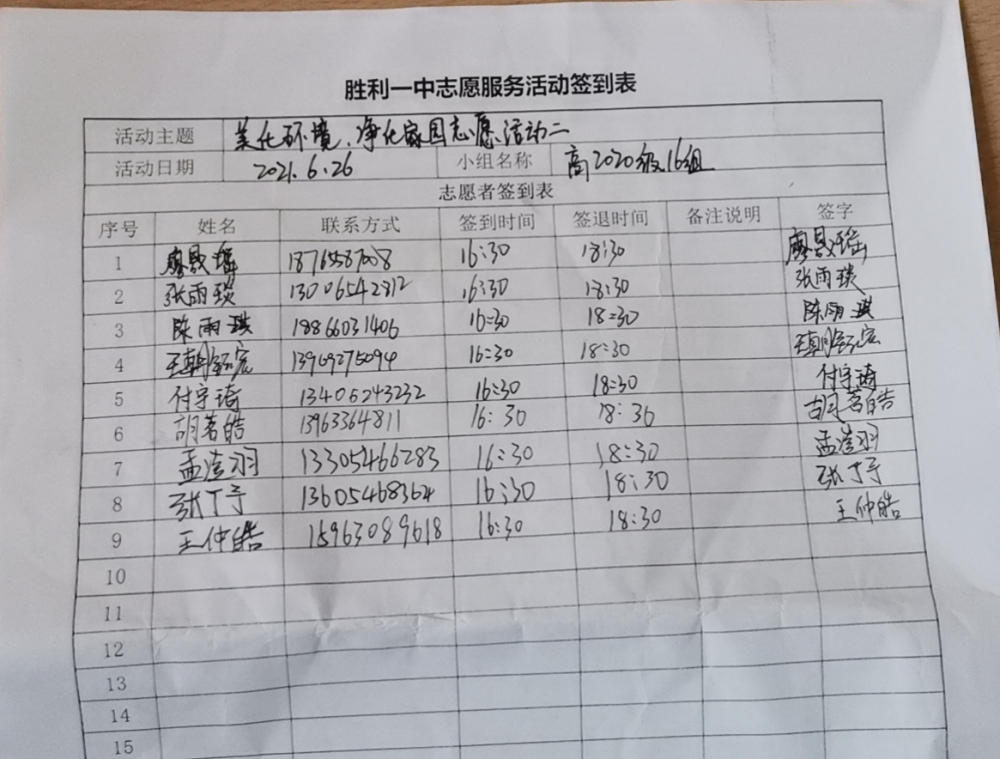 胜利一中志愿服务活动签到表
活动主题 美化环境,净化家园志愿活动二
活动日期 2021.6.26 小组名称 高2020级16组
志愿者签到表
序号 姓名 联系方式 签到时间 签退时间 备注说明 签字
1 廖晟瑶 18765587008 16:30 18:30 廖晟瑶
2 张雨琰 13006542812 16:30 18:30 张雨琰
3 陈雨琪 18866031406 16:30 18:30 陈雨琪
4 13969275094 16:30 18:30
5 付宇琦 13406243232 16:30 18:30 付宇琦
6 胡茗皓 13963364811 16:30 18:30 胡茗皓
7 孟滢羽 13305466283 16:30 18:30 孟滢羽
8 张丁予 13605468364 16:30 18:30 张丁予
9 王仲皓 15963089618 16:30 18:30 王仲皓
10
11
12
13
14
15